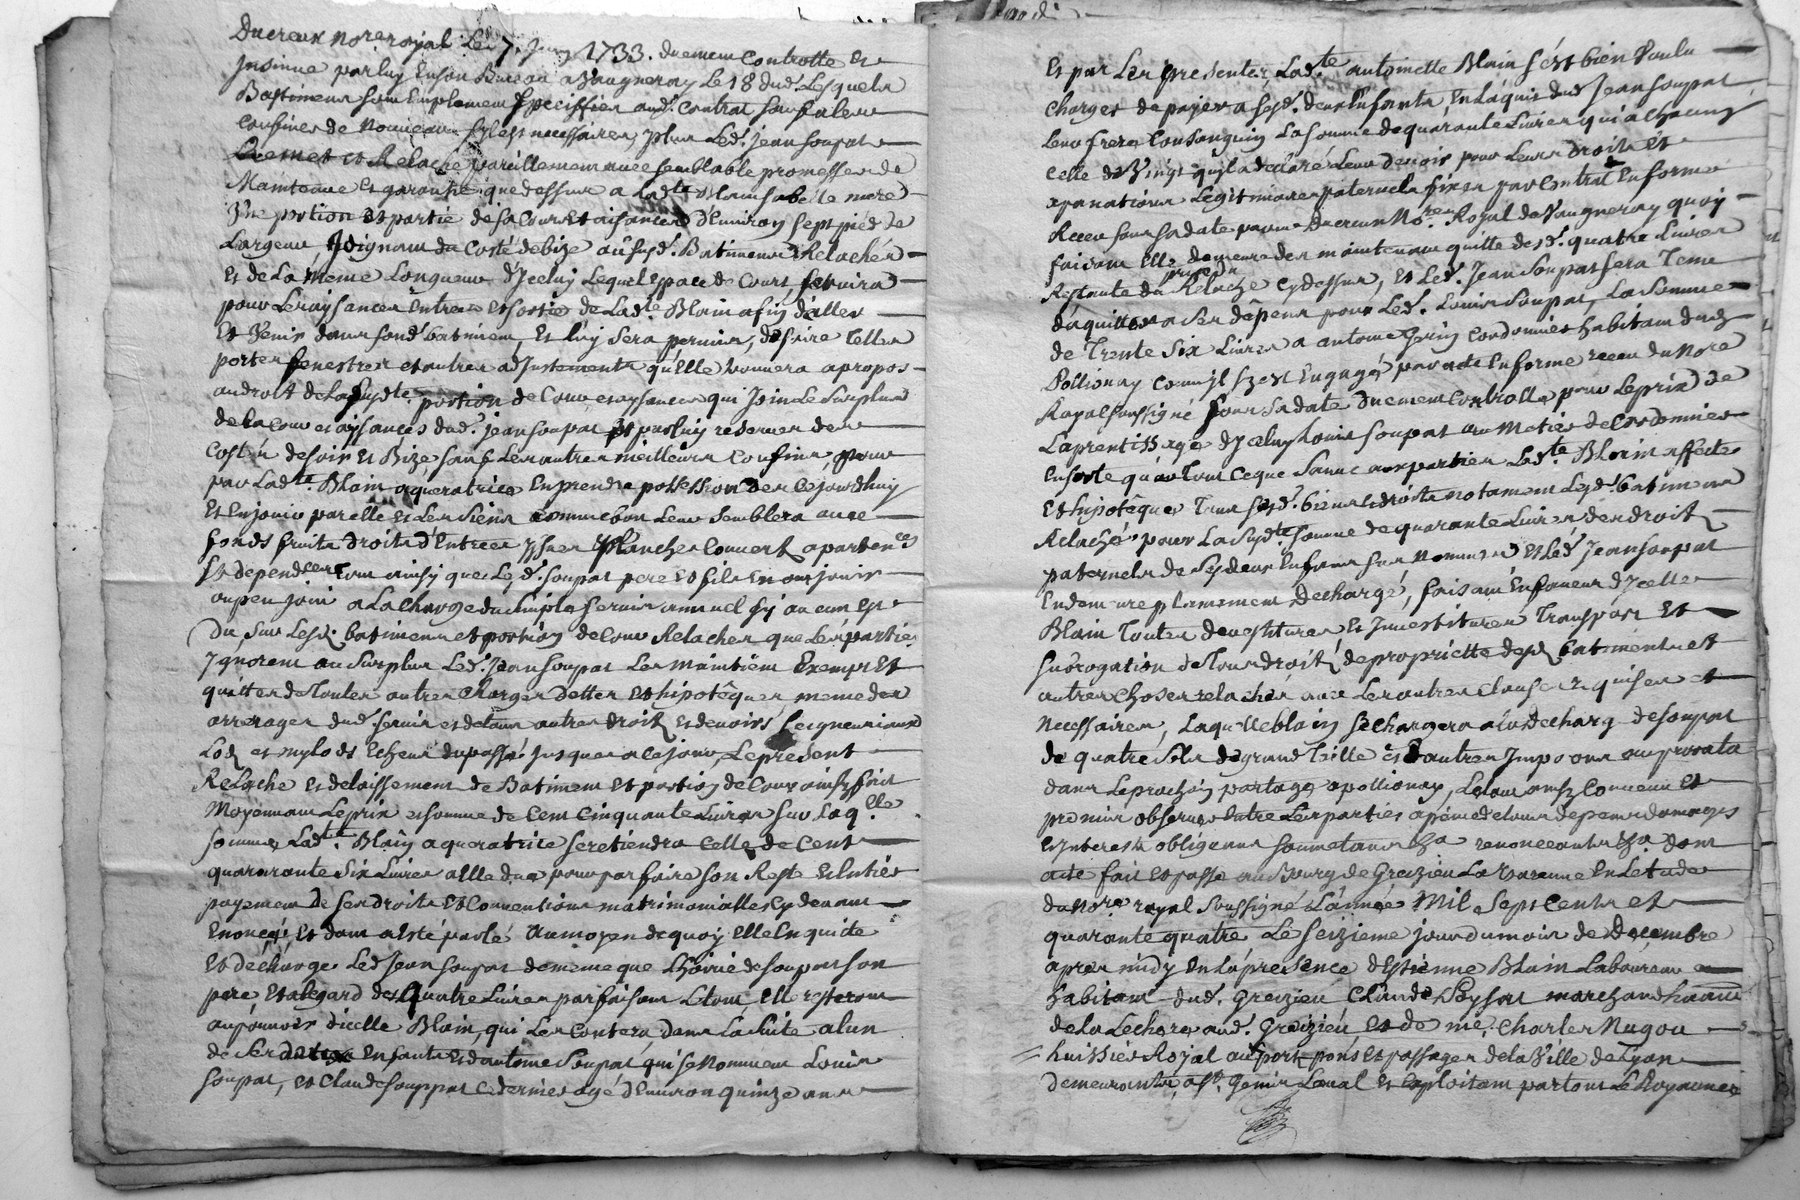 Ducreux no.re royal Le 7. Juin 1733. duement Controllé et
Insinué par luy En son Bureau a Vaugneray Le 18 dud. Lesquels
Bastimens sont Emplement speciffies aud. Contrat sauf à leurs
Confins de nouveau sy besoin necessaires, plus Led. Jean Soupat
Remet et Relache pareillement avec semblable promesse de
Maintenue et garantie que dessus a Lad.te Blain sa belle mere
Une portion et partie de sa Cour et aisances d'Environ sept pied de
Largeur Joignant du Costé de bize au susd. Batiment Relachér
et de La meme Longueur d'Jceluy Lequel Espace de Cour, servira
pour Les aysances Entrées et sortie de Lad.te Blain afin d'aller
et Venir dans sond. batiment, et Luy sera permis, de faire Telles
portes fenestres et autres adjustements qu'Elle trouvera apropos
au droit de La susd.te portion de Cour et aysances qui Joint Le surplus
de la Cour et aysances dud. jean soupat et par luy reservés des
Costés de soir et Bize, sauf Les autres meilleurs Confins, pour
par Lad.te Blain aqueratrice En prendre possession des cejourdhuy
et En jouir par elle et Les siens comme bon Leur semblera avec
fonds fruits droits d'Entrées yssues Planches Couvert apartences
et dependces tout ainsy que Led. soupat pere et fils En ont jouis
ou peu jouir a La charge du simple servis annuel sy aucun est
Du sur Lesd. batiments et portion de Cour Relachés que Les parties
Ignorent au surplus Led. Jean soupat Les maintient Exempt et
quittes de toutes autres charges dettes et hipotêques, meme des
arrerages dud. servis et de tous autres droits et devoirs seigneuriaux
Lods et mylods Echeus du passé jusques a ce jour, Le present
Relache et delaissement de Batiment et portion de Cour ainsy fait
Moyennant Le prix et somme de Cent Cinquante Livres sur Laq.lle
somme, Lad.te Blain aqueratrice se retiendra Celle de Cent
quarante six Livres a Elle due pour parfaire son Reste et Entier
payement de ses droits et Conventions matrimonialles cy devant
Enoncés, et dont a Esté parlé Au moyen de quoy elle En quitte
et décharge Led. Jean soupat de meme que L'hoirie de soupat son
pere, Et a Legard des Quatre Livres parfaisant Le tout elle resteront
au pouvoir d'icelle Blain, qui Les Contera, dans La suite a Lun
de ses deux Enfants et d'antoine Soupat, qui se Nomment Louis
Soupat, et Claude Souppat Ce dernier agé d'Environ quinze ans
Et par Les presentes Lad.te antoinette Blain s'est bien Voulu
Charger de payer a sesd. deux Enfants, En L'aquit dud. Jean soupat
Leur frere Consanguin La somme de quarante Livres qui à Chacun
Celle de Vingt qu'il a declaré Leur devoir pour Leurs droits et
Legitimaires paternels fixés par Contrat En forme
Receu sous sa date par me Ducreux No.re Royal de Vaugneray quoy
faisant Elle demeure des maintenant quitte desd. quatre Livres
Restante du prix du Relache cy dessus, et Led. Jean Soupat sera Tenu
d'aquitter a ses depens pour Led. Louis Soupat, La somme
de Trente Six Livres a antoine Cordonnier habitant dud.
Pollionay Comm'jl s'est Engagé par acte En forme receu du No.re
Royal soussigné sous sa date duement Controllé pour Le prix de
L'aprentissage d'Jceluy Louis Soupat au Metier de Cordonnier
En sorte qu'au tout ce que Lad.te Blain affecte
et hipotêque Tous sesd. biens et droits notament Lesd. batiments
Relachés pour La susd.te somme de quarante Livres des droits
paternels de sesd. deux Enfans sus nommés et Led. Jean Soupat
En demeure pleinement dechargé, faisant En faveur d'Jcelle
Blain Toutes devestitures et Jnvestitures Transport et
subrogation de tous droits de proprietté desd. batiments et
autres choses relachés avec Les autres Clauses requises et
Necessaires, Laquelle blain se chargera a la decharg. de soupat
de quatre sols de grand Taille et d'autres Impots au prorata
dans Le prochain partage a pollionay, Le tout ainsy Convenu et
promis observer Entre Les parties a peine de tous depens domages
et Interests obligeans soumetans &a renonceants &a. dont
acte fait et passé au Bourg de Greizieu La Varenne En Letude
du No.re royal Soussigné L'année Mil Sept Cents et
quarante quatre, Le seizieme jour du mois de Decembre
apres midy En La présence d'Estienne Blain Laboureur
habitant dud. Greizieu Claude Peysson marchand habitant
de La Lechere aud. Greizieu et de me. Charles Nugou
huissier Royal au port ponts et passages de la Ville de Lyon
demeurant a St. Genis Laval et Exploitant par tout Le Royaume